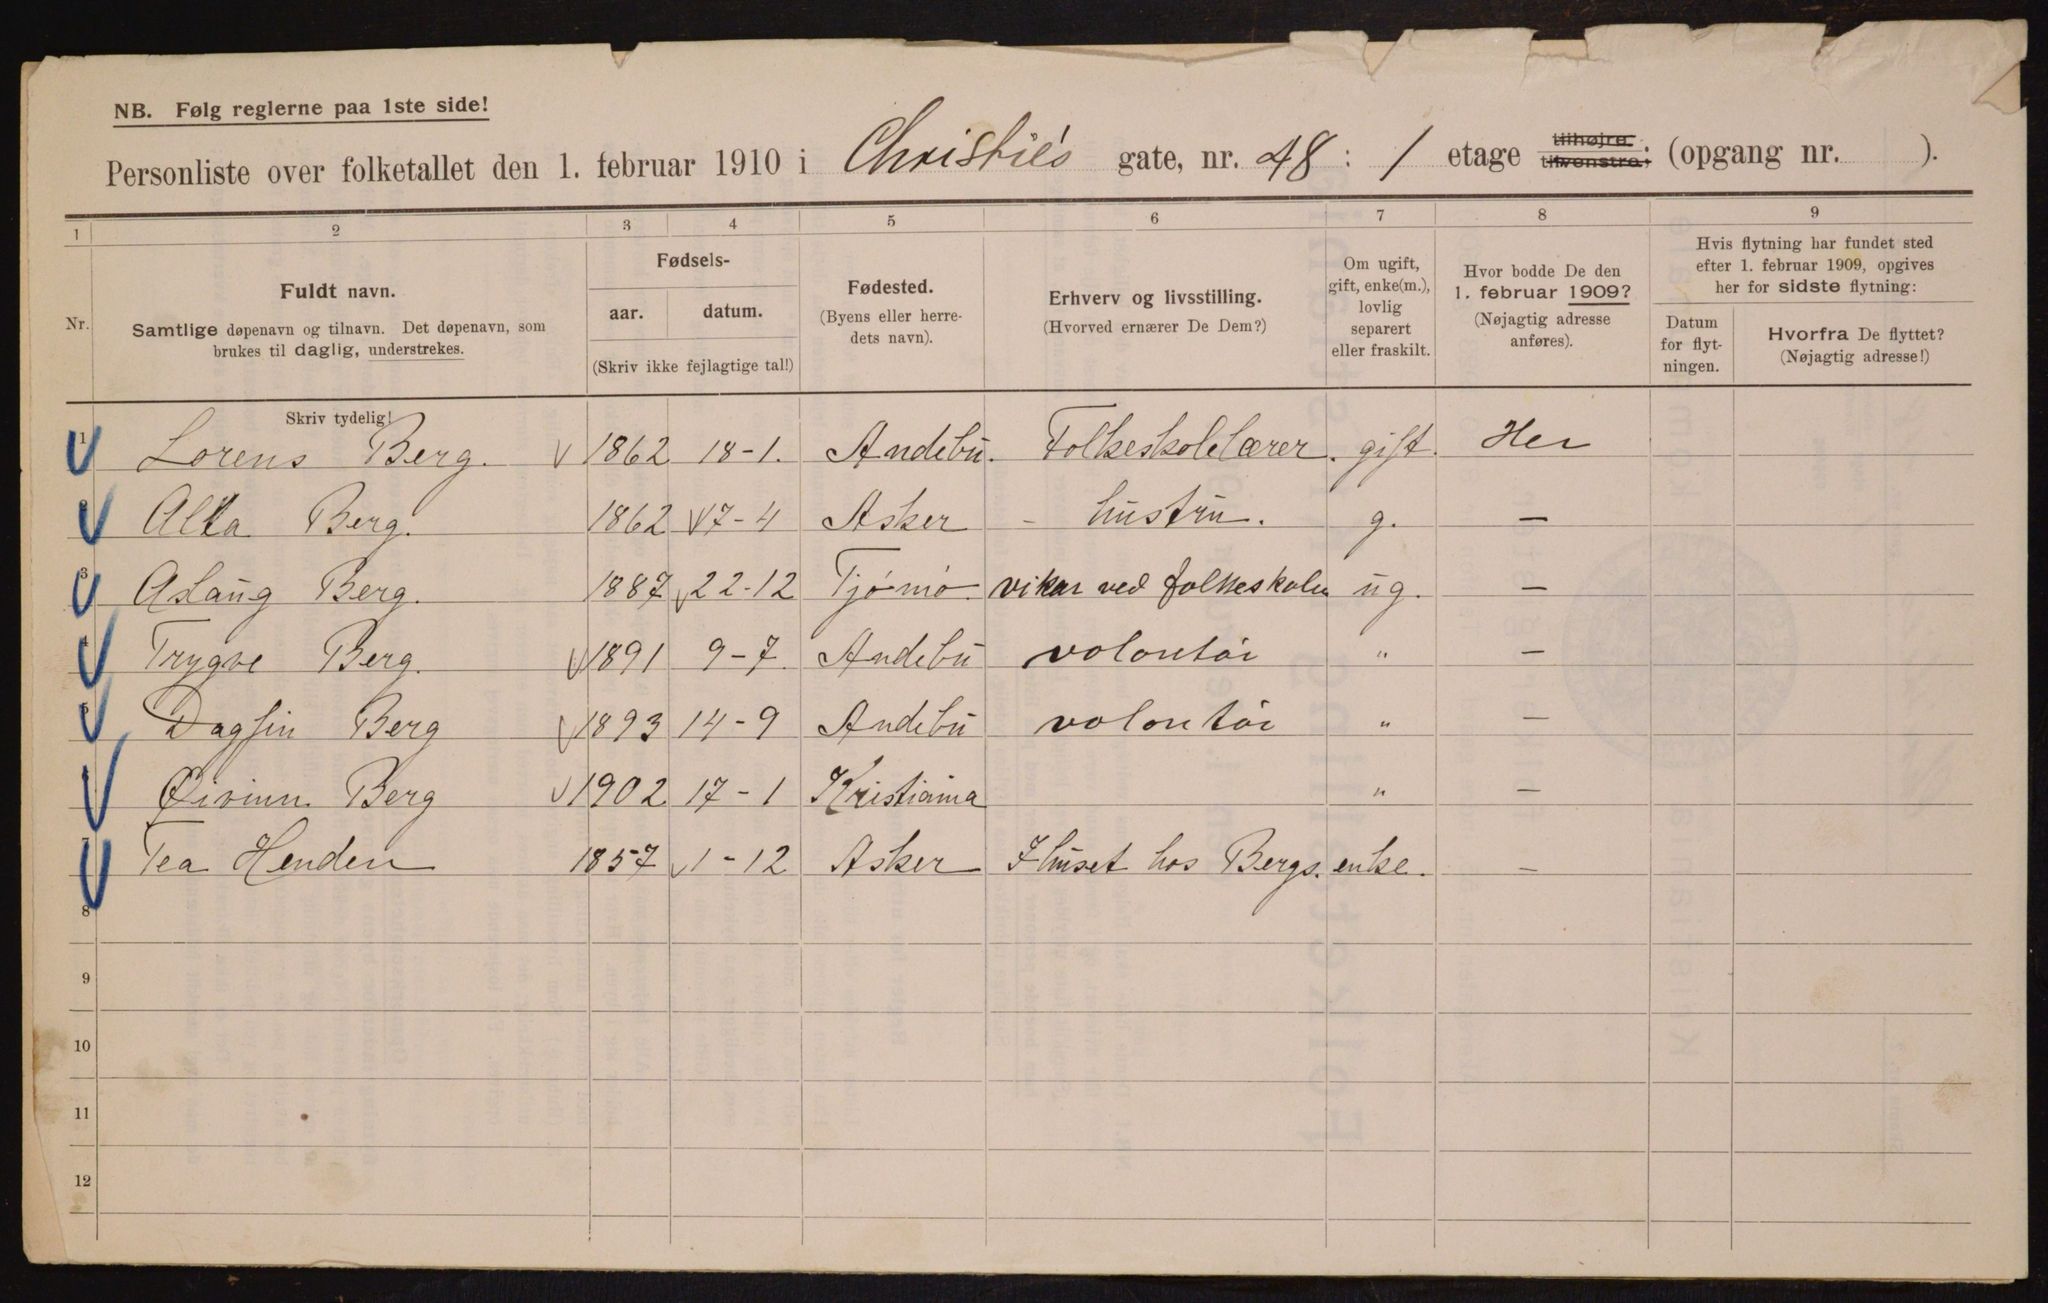 NB. Følg reglerne paa 1ste side!
Personliste over folketallet den 1. februar 1910 i Christie's gate, nr. 48 : 1 etage tilhøjre. tilvenstre; (opgang nr. ).
1 2 3 4 5 6 7 8 9
Nr.
Fuldt navn.
Samtlige døpenavn og tilnavn. Det døpenavn, som
brukes til daglig, understrekes.
Fødsels-
aar. datum.
(Skriv ikke fejlagtige tal!)
Fødested.
(Byens eller herre-
dets navn).
Erhverv og livsstilling.
(Hvorved ernærer De Dem?)
Om ugift,
gift, enke(m.),
lovlig
separert
eller fraskilt.
Hvor bodde De den
1. februar 1909?
(Nøjagtig adresse
anføres).
Hvis flytning har fundet sted
efter 1. februar 1909, opgives
her for sidste flytning:
Datum
for flyt-
ningen.
Hvorfra De flyttet?
(Nøjagtig adresse!)
Skriv tydelig!
1 Lorens Berg. 1862 18-1. Andebu. Folkeskolelærer. gift. Her
2 Berg. 1862 17-4 Asker - hustru. g. —
3 Aslaug Berg. 1887 22-12 Tjømø. vikar ved folkeskolen ug. —
4 Trygve Berg. 1891 9-7. Andebu volontør " —
5 Dagfin Berg 1893 14-9 Andebu volontør " —
6 Øivinn Berg 1902 17-1 Kristiania " —
7 Tea Henden 1857 1-12 Asker I huset hos Bergs. enke. —
8
9
10
11
12